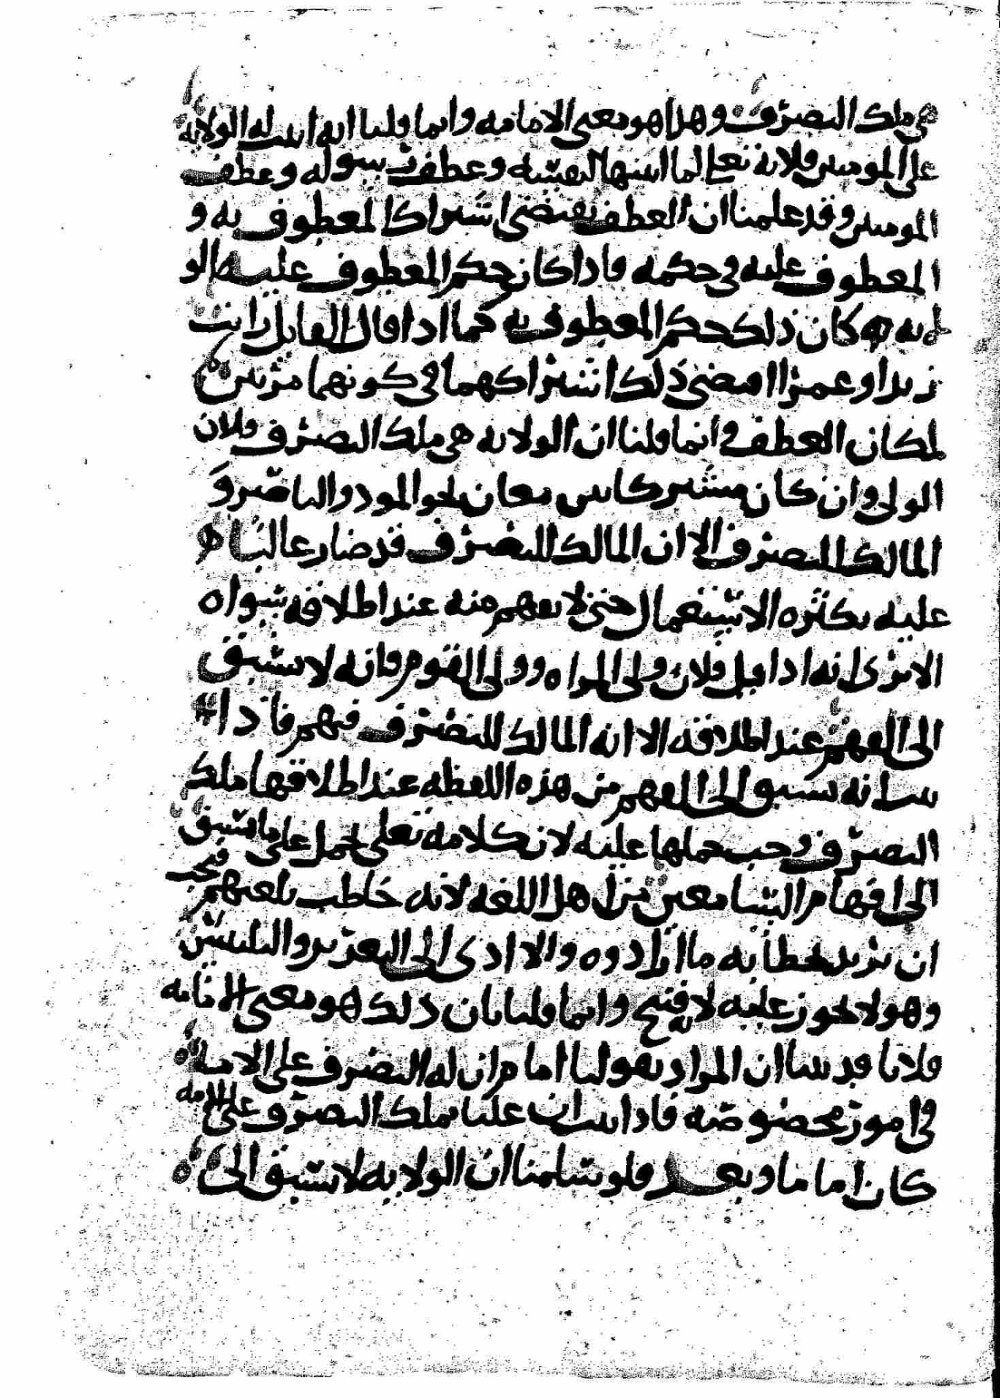 هي ملك التصرف وهذا هو معنى الامامه وانما قلنا انه اثبت له الولايه
على المومنين فلانه تعالى لما اثبتها لنفسه وعطف رسوله وعطف
المومنين وقد علمنا ان العطف يقتضي اشتراك المعطوف به و
المعطوف عليه في حكمه فاذا كان حكم المعطوف عليه الو
لايه كان ذلك حكم المعطوف به كما اذا قال القايل رايت
زيدا وعمرا اقتضى ذلك اشتراكهما في كونهما مرئيين
لمكان العطف وانما قلنا ان الولايه هي ملك التصرف فلان
الولي وان كان مشتركا بين معان نحو المود والناصر و
المالك للتصرف الا ان المالك للتصرف قد صار غالبا
عليه بكثره الاستعمال حتى لا يفهم منه عند اطلاقه سواه
الا ترى انه اذا قيل فلان ولي المراه وولي القوم فانه لا يسبق
الى الفهم عند اطلاقه الا انه المالك للتصرف فيهم فاذا
ثبت انه يسبق الى الفهم من هذه اللفظه عند اطلاقها ملك
التصرف وجب حملها عليه لان كلامه تعالى يحمل على ما يسبق
الى افهام السامعين من اهل اللغه لانه خاطب بلغتهم فيجب
ان يريد بخطابه ما ارادوه والا ادى الى التعزير والتلبيس
وهو لا يجوز عليه لانه قبيح وانما قلنا بان ذلك هو معنى الامامه
فلانا قد بينا ان المراد بقولنا امام ان له التصرف على الامه
في امور مخصوصه فاذا ثبت ان عليا يملك التصرف على الامه
كان اماما وبعد فلو سلمنا ان الولايه لا تسبق الى